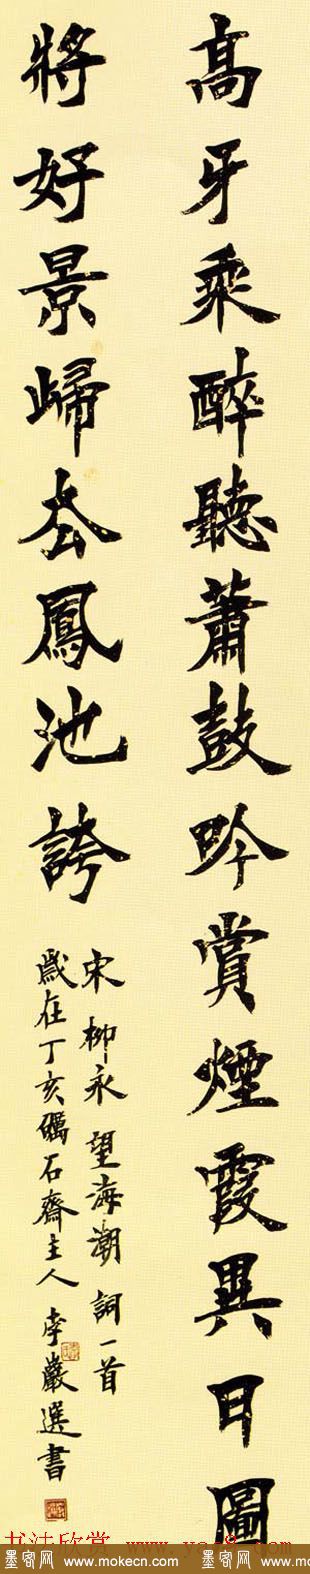 高牙乘醉聽蕭鼓吟賞煙霞異日圖
將好景歸去鳳池誇
宋柳永望海潮詞一首
歲在丁亥礪石齋主人李巖選書
书法欣赏
墨客网 www.mokecn.com 墨客网 www.mokecn.com